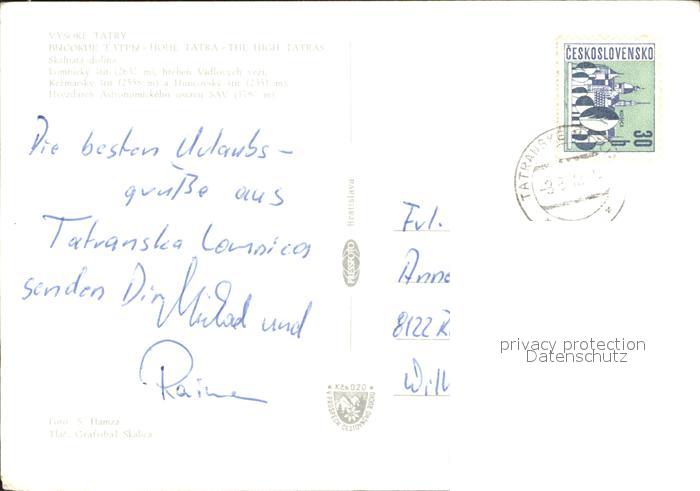 VYSOKÉ TATRY
ВЫСОКИЕ ТАТРЫ - HOHE TATRA - THE HIGH TATRAS
Skalnatá dolina
Lomnický štít (2632 m), hrebeň Vidlových veží,
Kežmarský štít (2558 m) a Huncovský štít (2353 m).
Hvezdáreň Astronomického ústavu SAV (1787 m).
Die besten Urlaubs-
grüße aus
Tatranska Lomnica
senden Dir Michael und
Rainer
Foto: S. Hamza
Tlač: Grafobal Skalica
Bratislava
PRESSFOTO
Kčs 0,20
V PROSPECH CESTOVNÉHO RUCHU
ČESKOSLOVENSKO
30 h
TATRANSKÁ
Frl.
Anne
8122
Will
privacy protection
Datenschutz